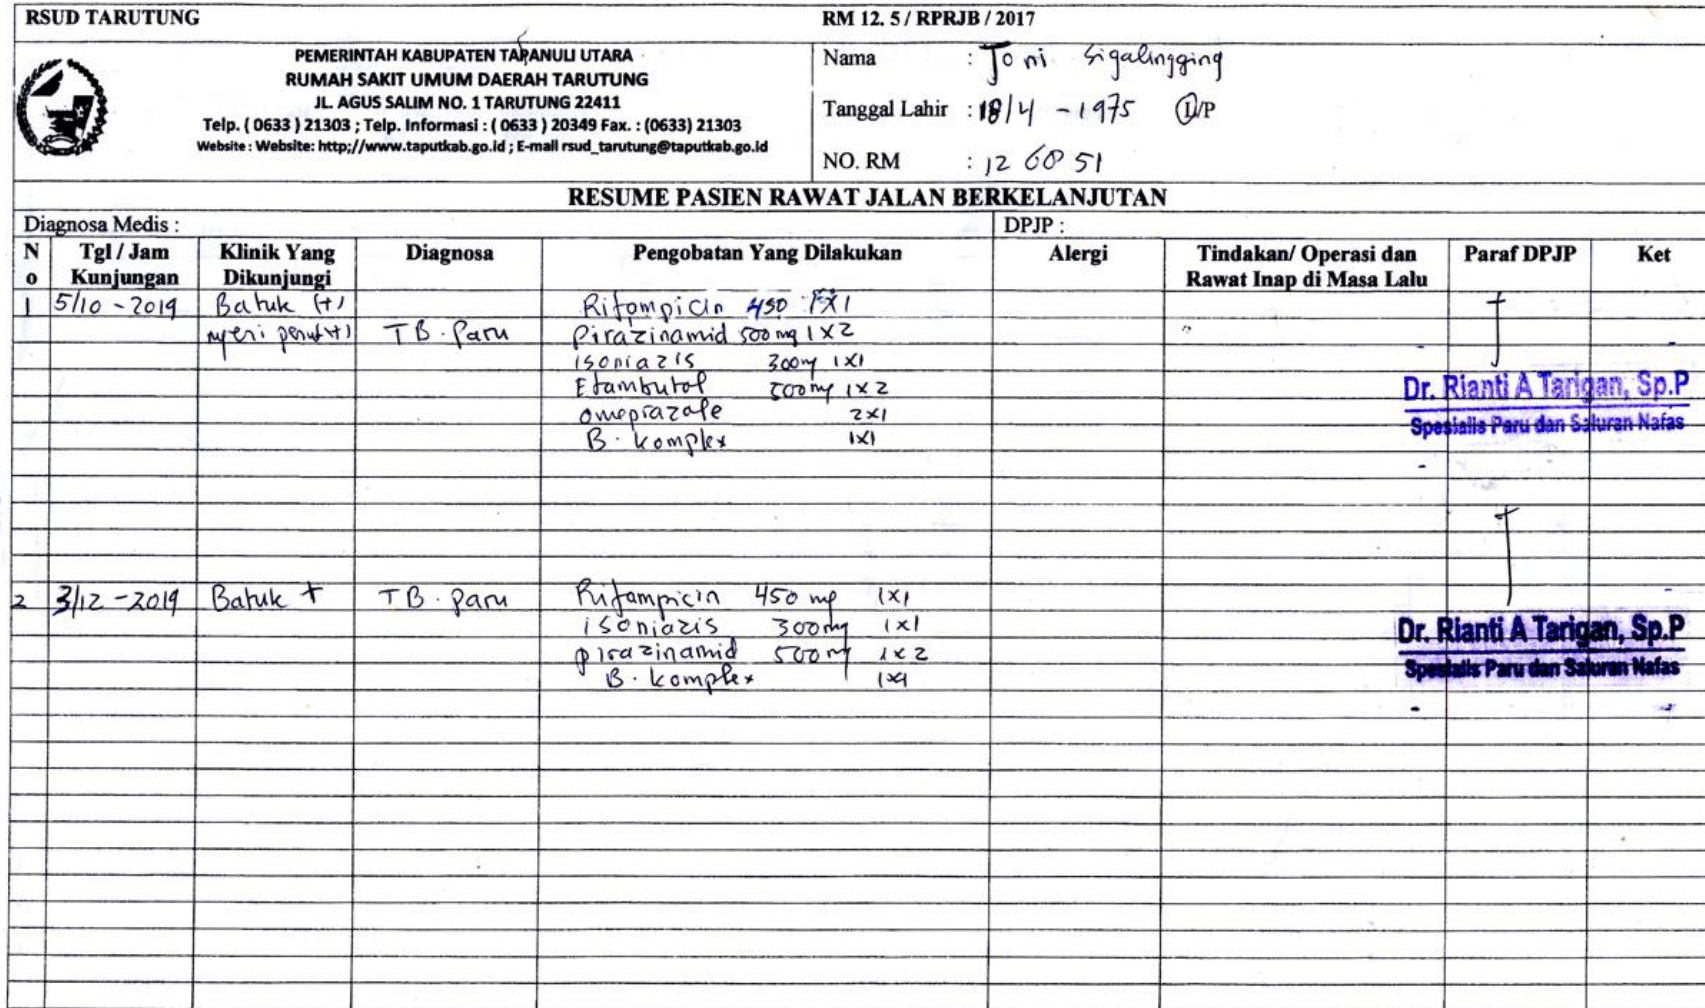 RSUD TARUTUNG RM 12. 5 / RPRJB / 2017
PEMERINTAH KABUPATEN TAPANULI UTARA
RUMAH SAKIT UMUM DAERAH TARUTUNG
JL. AGUS SALIM NO. 1 TARUTUNG 22411
Telp. ( 0633 ) 21303 ; Telp. Informasi : ( 0633 ) 20349 Fax. : (0633) 21303
Website : Website: http;//www.taputkab.go.id ; E-mail rsud_tarutung@taputkab.go.id
Nama : Joni Sigalingging
Tanggal Lahir : 18/4 - 1975 L/P
NO. RM : 12 60 51
RESUME PASIEN RAWAT JALAN BERKELANJUTAN
Diagnosa Medis : DPJP :
No Tgl / Jam Kunjungan Klinik Yang Dikunjungi Diagnosa Pengobatan Yang Dilakukan Alergi Tindakan/ Operasi dan Rawat Inap di Masa Lalu Paraf DPJP Ket
1 5/10 - 2019 Batuk (+) Rifampicin 450 1x1
nyeri perut (+) TB. Paru Pirazinamid 500 mg 1x2
isoniazis 300mg 1x1
Etambutol 500mg 1x2
Dr. Rianti A Tarigan, Sp.P
omeprazole 2x1
Spesialis Paru dan Saluran Nafas
B. komplex 1x1
2 3/12 - 2019 Batuk + TB. paru Rifampicin 450 mg 1x1
isoniazis 300mg 1x1
Dr. Rianti A Tarigan, Sp.P
pirazinamid 500mg 1x2
Spesialis Paru dan Saluran Nafas
B. komplex 1x1